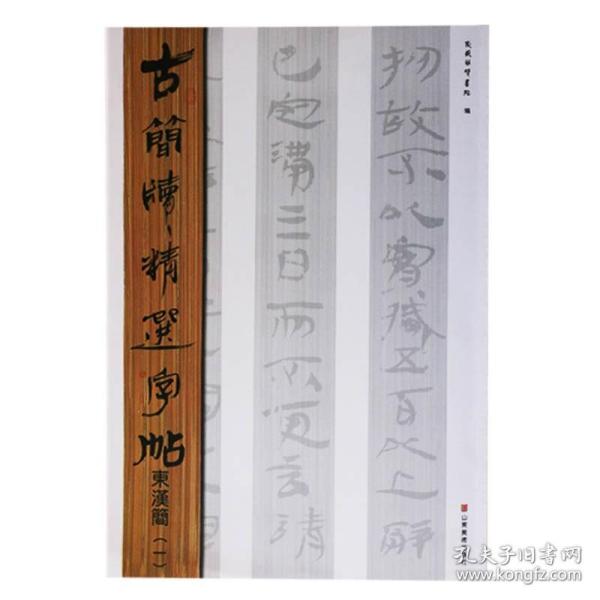 古簡牘精選字帖
東漢簡（一）
編
掾故不以實臧五百以上辭
已定滿三日而不更言請
山東美術
孔夫子旧书网
www.kongfz.com